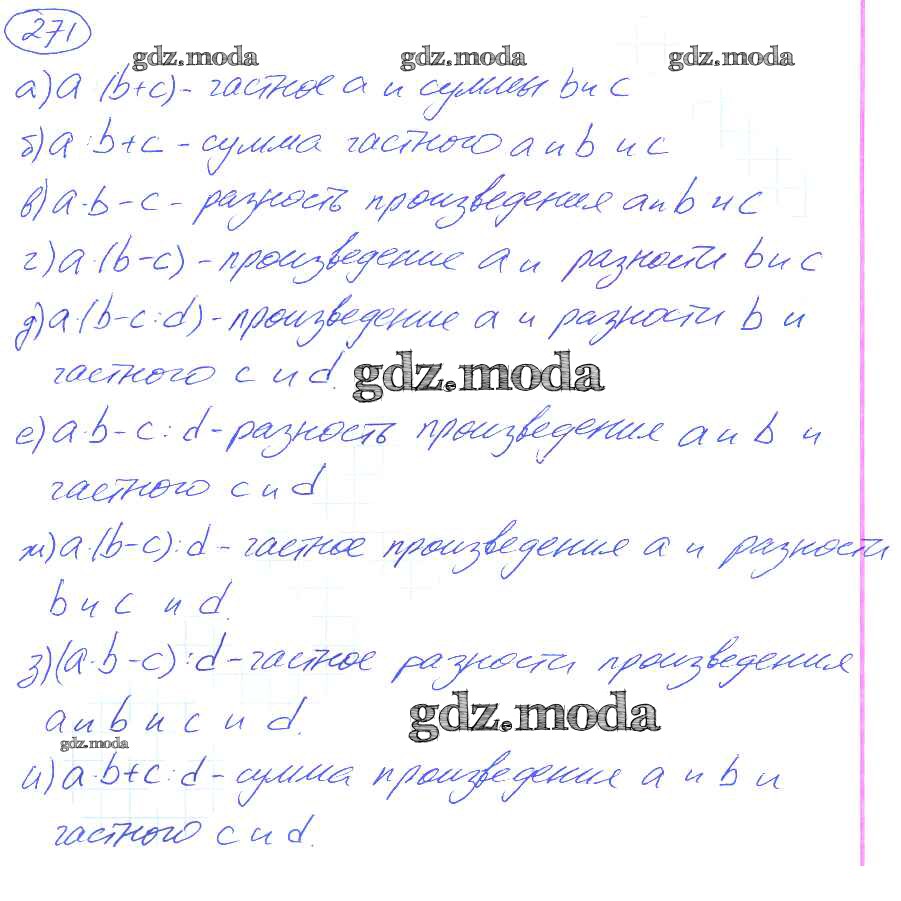 271
gdz.moda gdz.moda gdz.moda
а) a (b+c) - частное a и суммы b и c
б) a : b + c - сумма частного a и b и c
в) a · b - c - разность произведения a и b и c
г) a · (b - c) - произведение a и разности b и c
д) a · (b - c : d) - произведение a и разности b и
частного c и d.
gdz.moda
е) a · b - c : d - разность произведения a и b и
частного c и d
ж) a · (b - c) : d - частное произведения a и разности
b и c и d.
з) (a · b - c) : d - частное разности произведения
a и b и c и d.
gdz.moda
gdz.moda
и) a · b + c : d - сумма произведения a и b и
частного c и d.